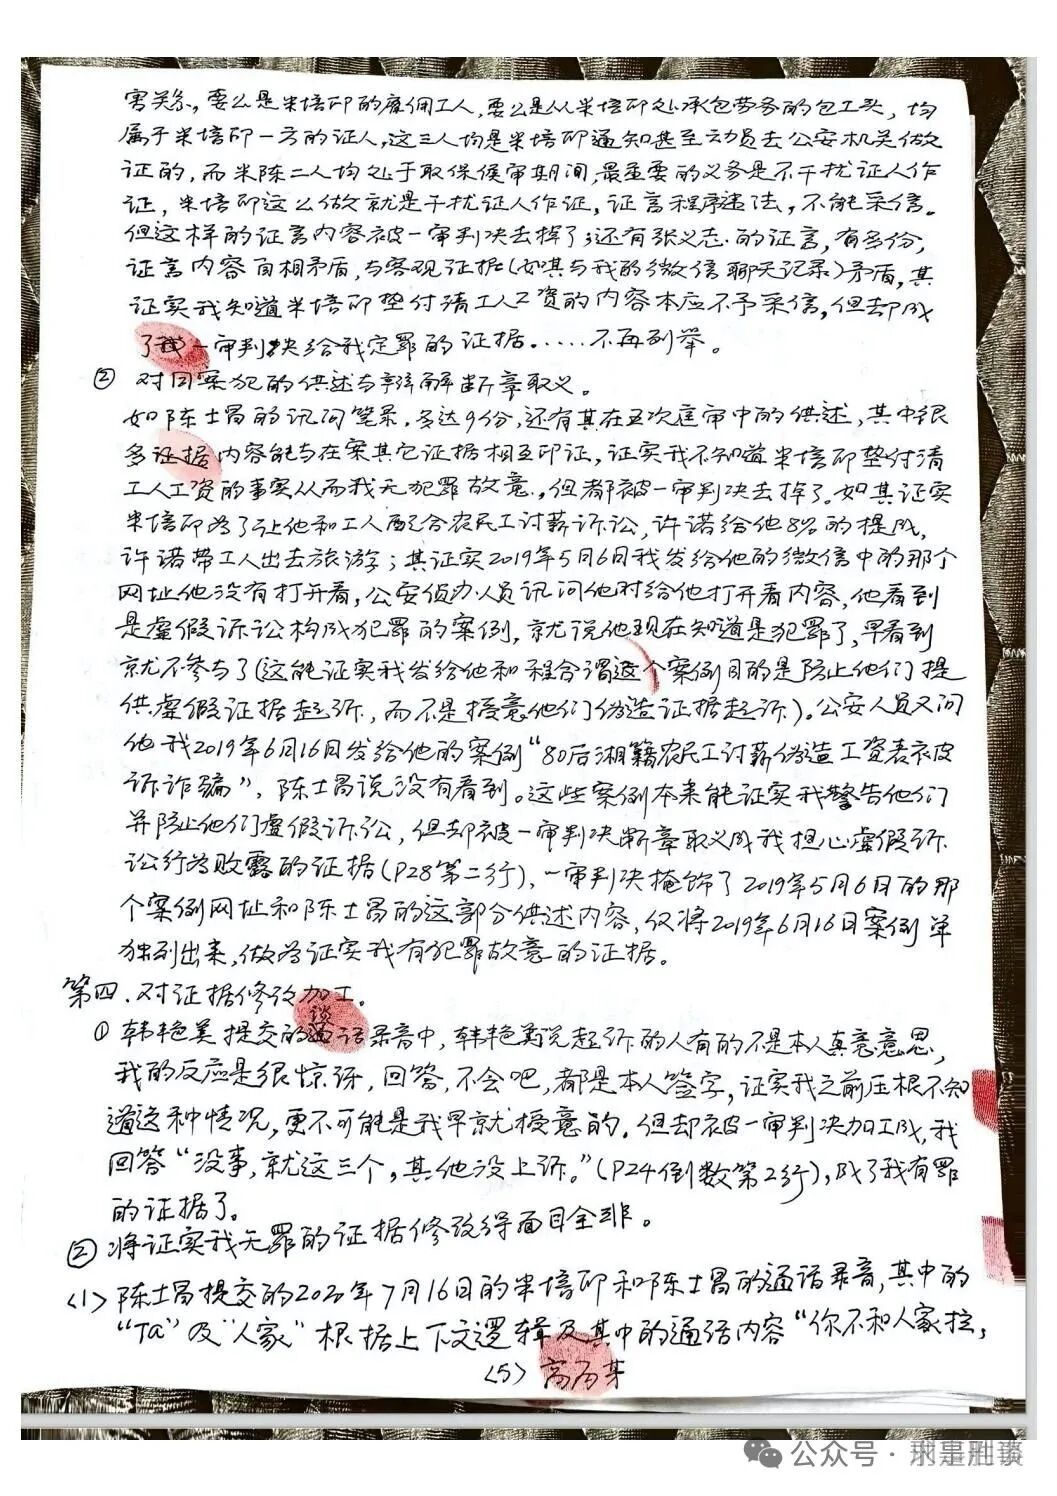 害关系，要么是米培印的雇佣工人，要么是从米培印处承包劳务的包工头，均
属于米培印一方的证人，这三人均是米培印通知甚至动员去公安机关做
证的，而米陈二人均处于取保候审期间，最重要的义务是不干扰证人作
证，米培印这么做就是干扰证人作证，证言程序违法，不能采信。
但这样的证言内容被一审判决去掉了；还有张义志的证言，有多份，
证言内容自相矛盾，与客观证据（如其与我的微信聊天记录）矛盾，其
证实我知道米培印垫付清工人工资的内容本应不予采信，但却成
了我一审判决给我定罪的证据……不再列举。
② 对同案犯的供述与辩解断章取义。
如陈士昌的讯问笔录，多达9份，还有其在五次庭审中的供述，其中很
多证据内容能与在案其它证据相互印证，证实我不知道米培印垫付清
工人工资的事实从而我无犯罪故意，但都被一审判决去掉了。如其证实
米培印为了让他和工人配合农民工讨薪诉讼，许诺给他8%的提成，
许诺带工人出去旅游；其证实2019年5月6日我发给他的微信中的那个
网址他没有打开看，公安侦办人员讯问他时给他打开看内容，他看到
是虚假诉讼构成犯罪的案例，就说他现在知道是犯罪了，早看到
就不参与了（这能证实我发给他和程合谓这个案例目的是防止他们提
供虚假证据起诉，而不是授意他们伪造证据起诉）。公安人员又问
他我2019年6月16日发给他的案例“80后湘籍农民工讨薪伪造工资表被
诉诈骗”，陈士昌说没有看到。这些案例本来能证实我警告他们
并防止他们虚假诉讼，但却被一审判决断章取义成我担心虚假诉
讼行为败露的证据（P28第二行），一审判决掩饰了2019年5月6日的那
个案例网址和陈士昌的这部分供述内容，仅将2019年6月16日案例单
独列出来，做为证实我有犯罪故意的证据。
第四、对证据修改加工。
① 韩艳美提交的谈话录音中，韩艳美说起诉的人有的不是本人真意意思，
我的反应是很惊讶，回答，不会吧，都是本人签字，证实我之前压根不知
道这种情况，更不可能是我早就授意的。但却被一审判决加工成，我
回答“没事，就这三个，其他没上诉。”（P24倒数第2行），成了我有罪
的证据了。
② 将证实我无罪的证据修改得面目全非。
〈1〉陈士昌提交的2020年7月16日的米培印和陈士昌的通话录音，其中的
“Ta”及“人家”根据上下文逻辑及其中的通话内容“你不和人家拉，
〈5〉高丙芳
公众号·刑事胜谈